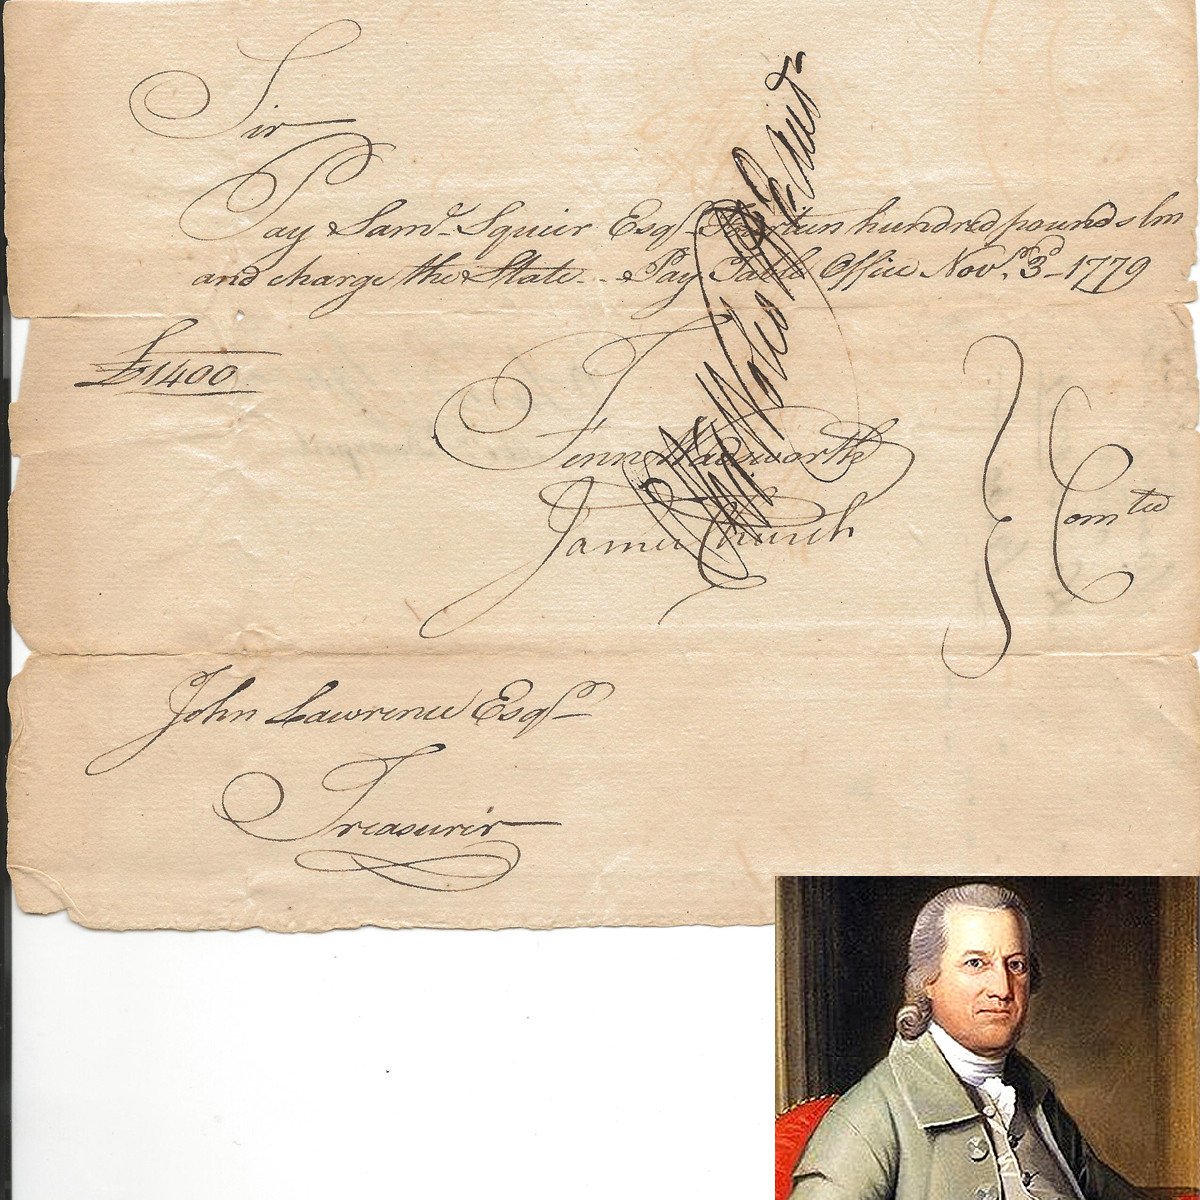 Sir
Pay Sam.ˡ Squier Esqʳ Fourteen hundred pounds lm
and charge the State. - Pay Table Office Nov.ʳ 3ᵈ - 1779
£1400
Fenn Wadsworth
James Church
Comᵗᵉᵉ
John Lawrence Esqʳ
Treasurer